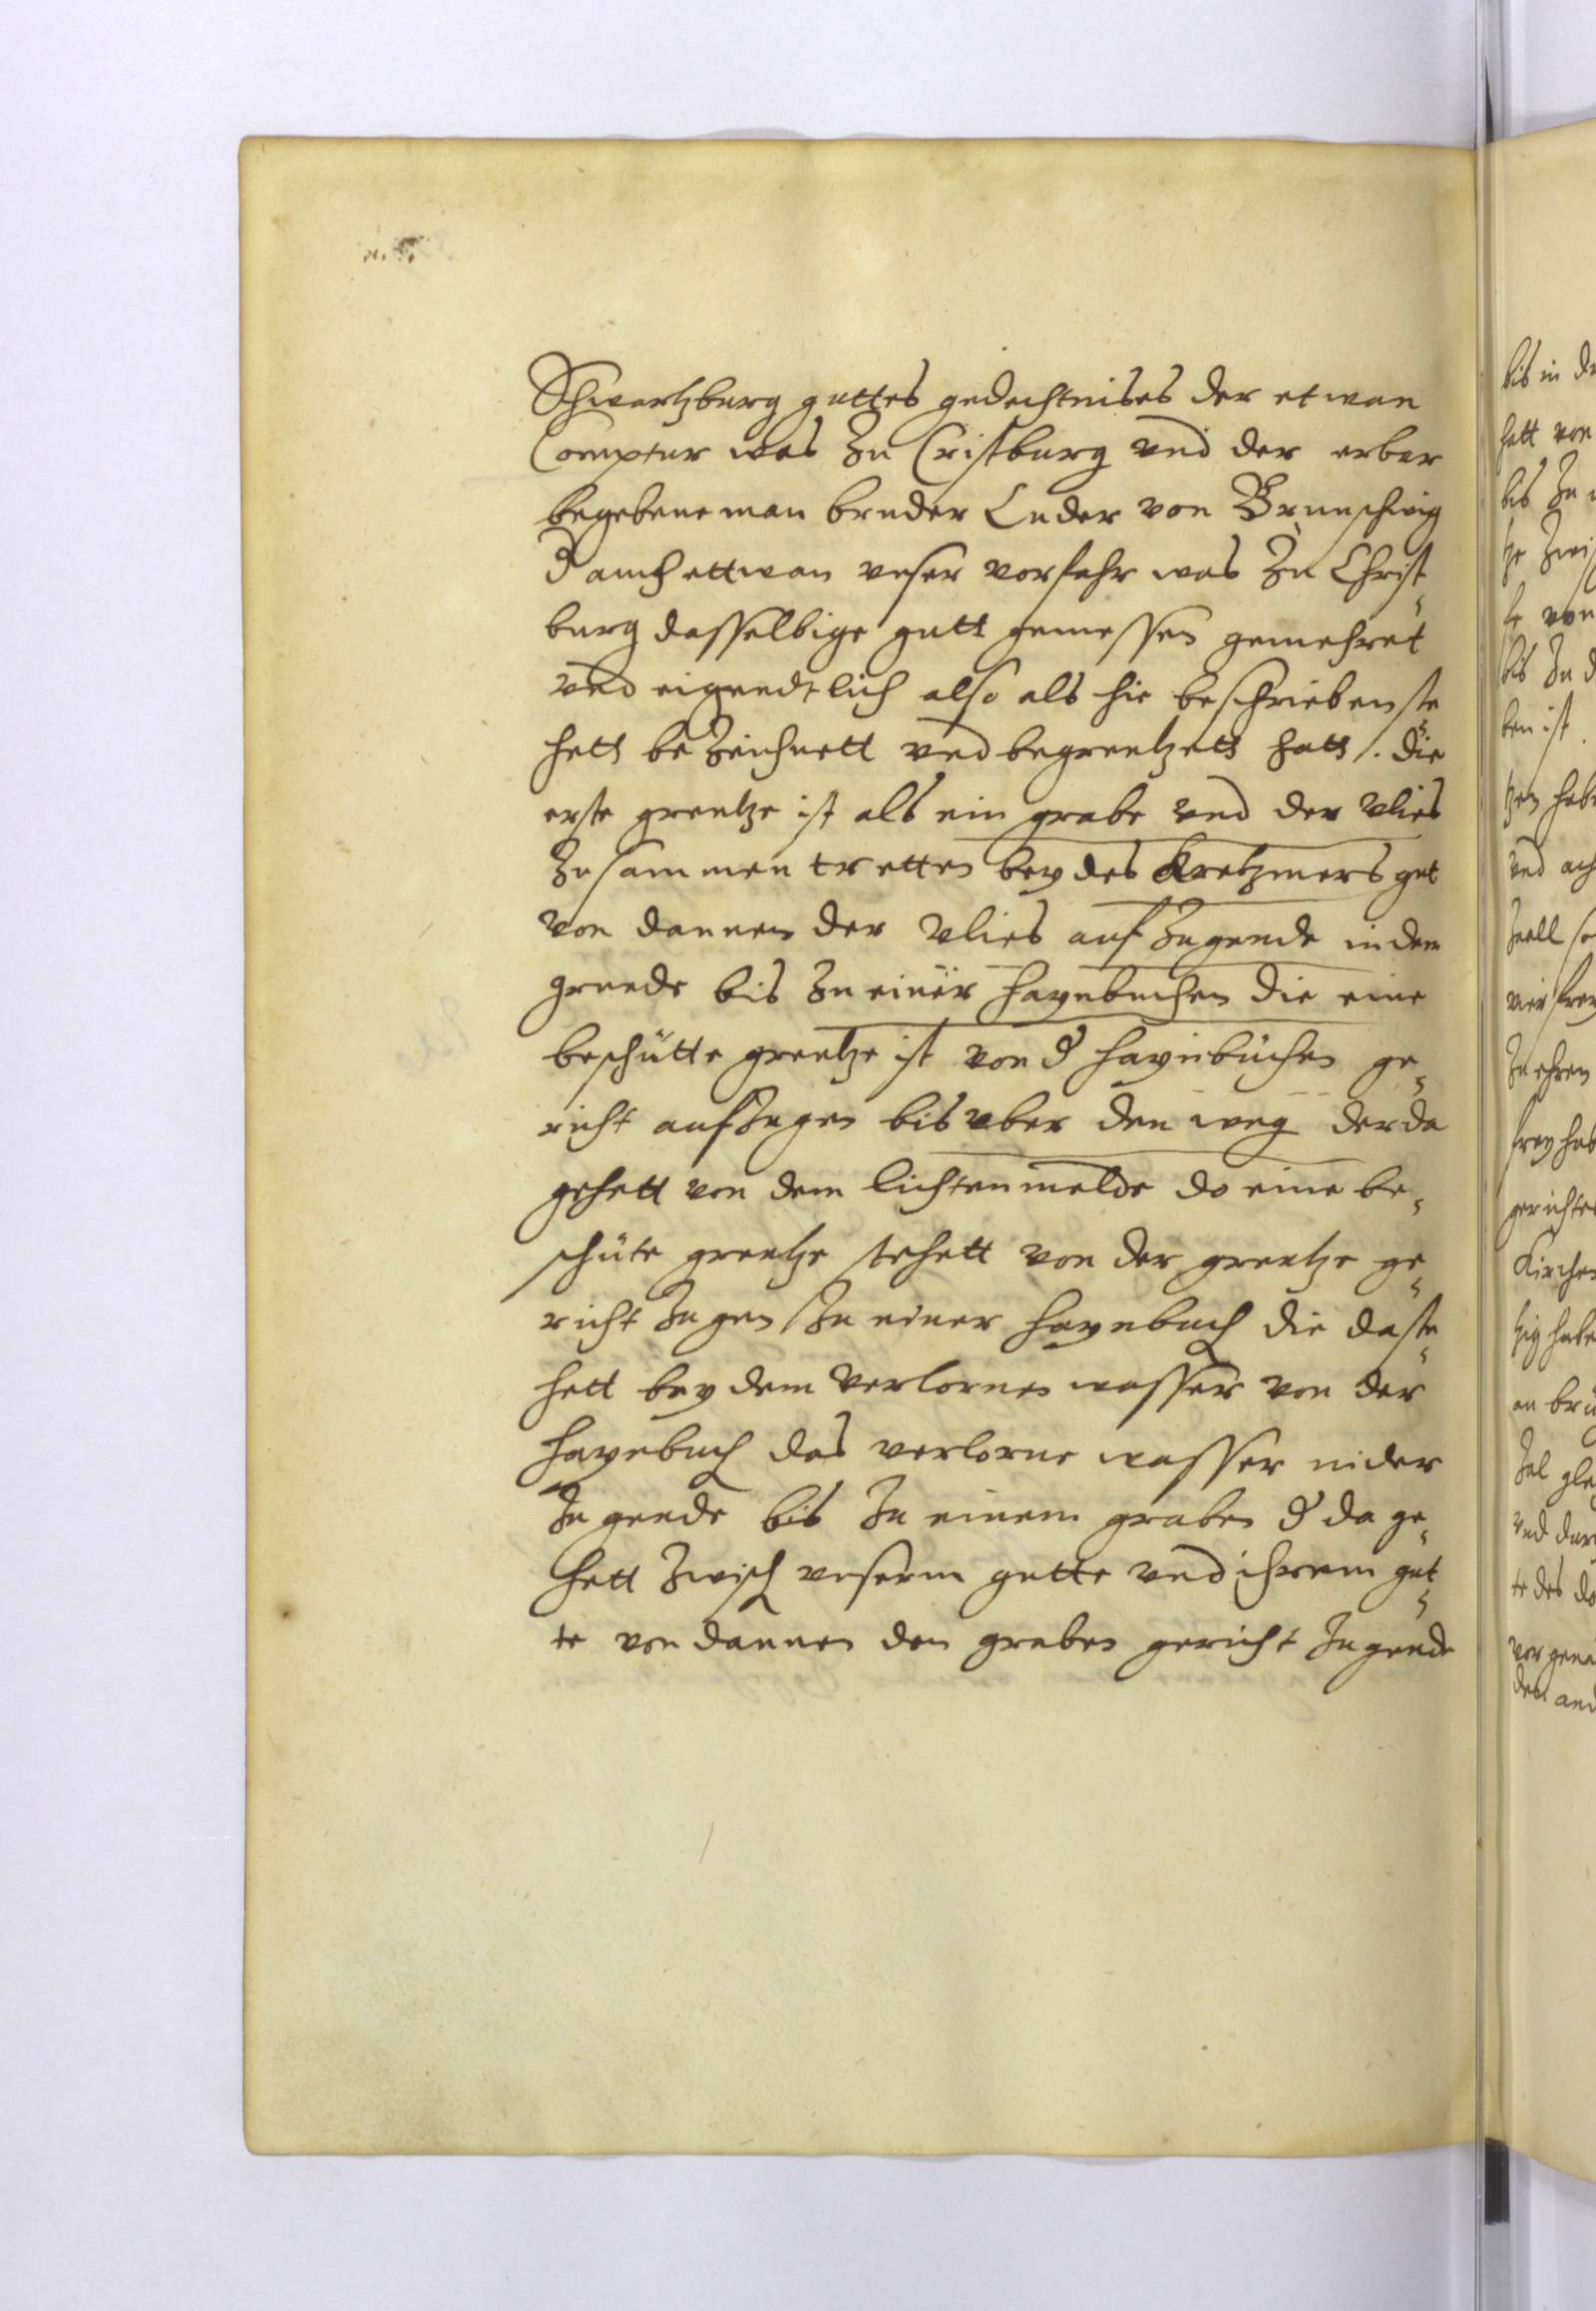 Schwartzburg guttes gedechtnises der etwan
Comptur was zu Cristburg vnd der erber
begebene man bruder Luder von Brunschwig
d auch ettwan vnser vorfahr was zu Christ
burg dasselbige gutt gemessen gemehret
vnd eigendtlich also als hie beschrieben ste
hett bezeichnett vnd begrentzett hatt. die
erste grentze ist als ein grabe vnd der vlies
zusammen tretten bey des Kretzmers gut
von dannen der vlies auf zugende in dem
grunde bis zu einer haynbuchen die eine
beschütte grentze ist von d haynbüchen ge
richt aufzugen bis vber den weg der da
gehett von dem lichtenwelde do eine be
schüte grentze stehett von der grentze ge
richt zugen zu einer haynbuch die da ste
hett bey dem verlornen wasser von der
haynbuch das verlorne wasser nider
zugende bis zu einem graben d da ge
hett zwisch vnserm gutte vnd ihrem gut
te von dannen den graben gericht zugende
bis in
hett von
bis zu
tze
von
bis zu d
ben ist
tzen
vnd
vier
zu ehren
frey hab
gerichte
Kirchen
an
vnd
te des do
vor
den and